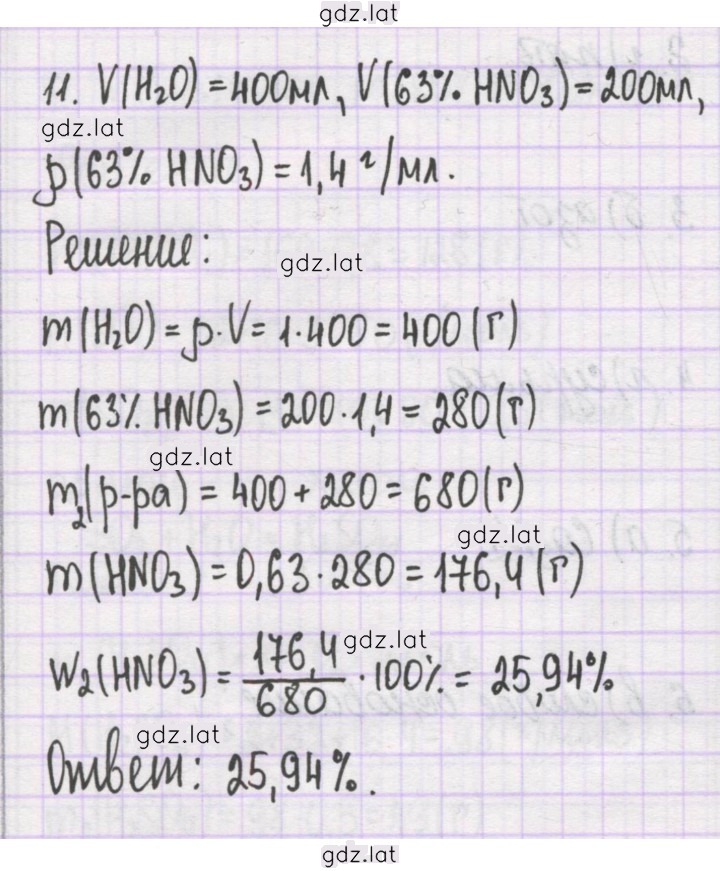 gdz.lat
11. V(H₂O) = 400мл, V(63% HNO₃) = 200мл,
gdz.lat
ρ(63% HNO₃) = 1,4 г/мл.
Решение:
gdz.lat
m(H₂O) = ρ·V = 1·400 = 400(г)
m(63% HNO₃) = 200·1,4 = 280(г)
gdz.lat
m₂(р-ра) = 400 + 280 = 680(г)
gdz.lat
m(HNO₃) = 0,63·280 = 176,4(г)
gdz.lat
W₂(HNO₃) = 176,4/680 · 100% = 25,94%
gdz.lat
Ответ: 25,94%.
gdz.lat